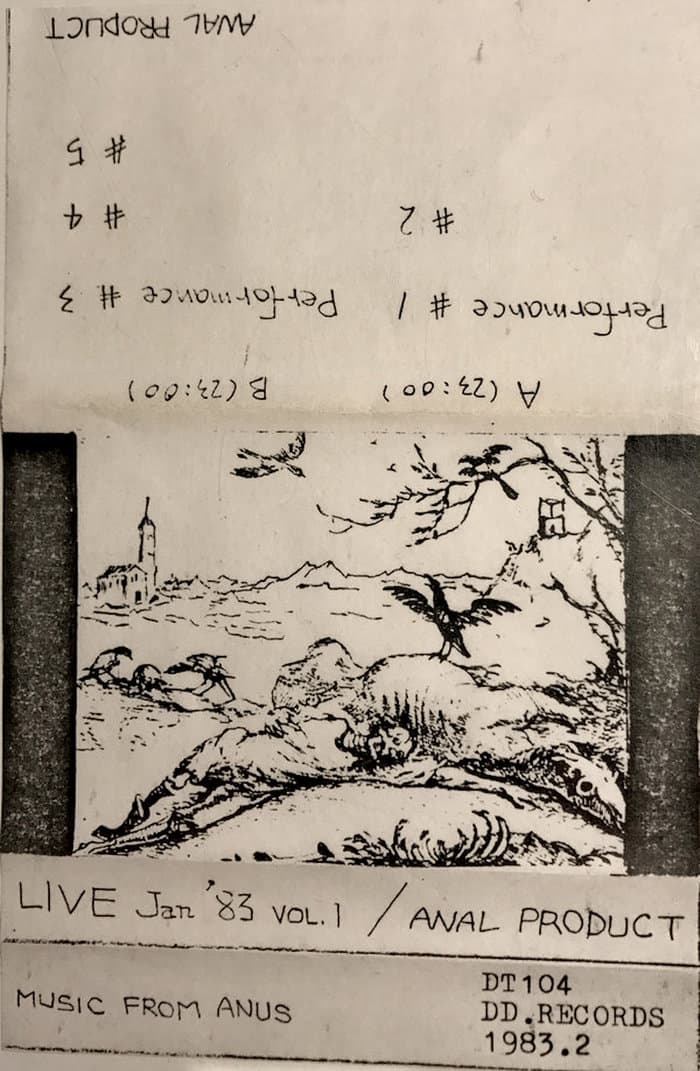 A (23:00)
B (23:00)
Performance # 1
Performance # 3
# 2
# 4
# 5
ANAL PRODUCT
LIVE Jan '83 VOL.1 / ANAL PRODUCT
MUSIC FROM ANUS
DT104
DD.RECORDS
1983.2